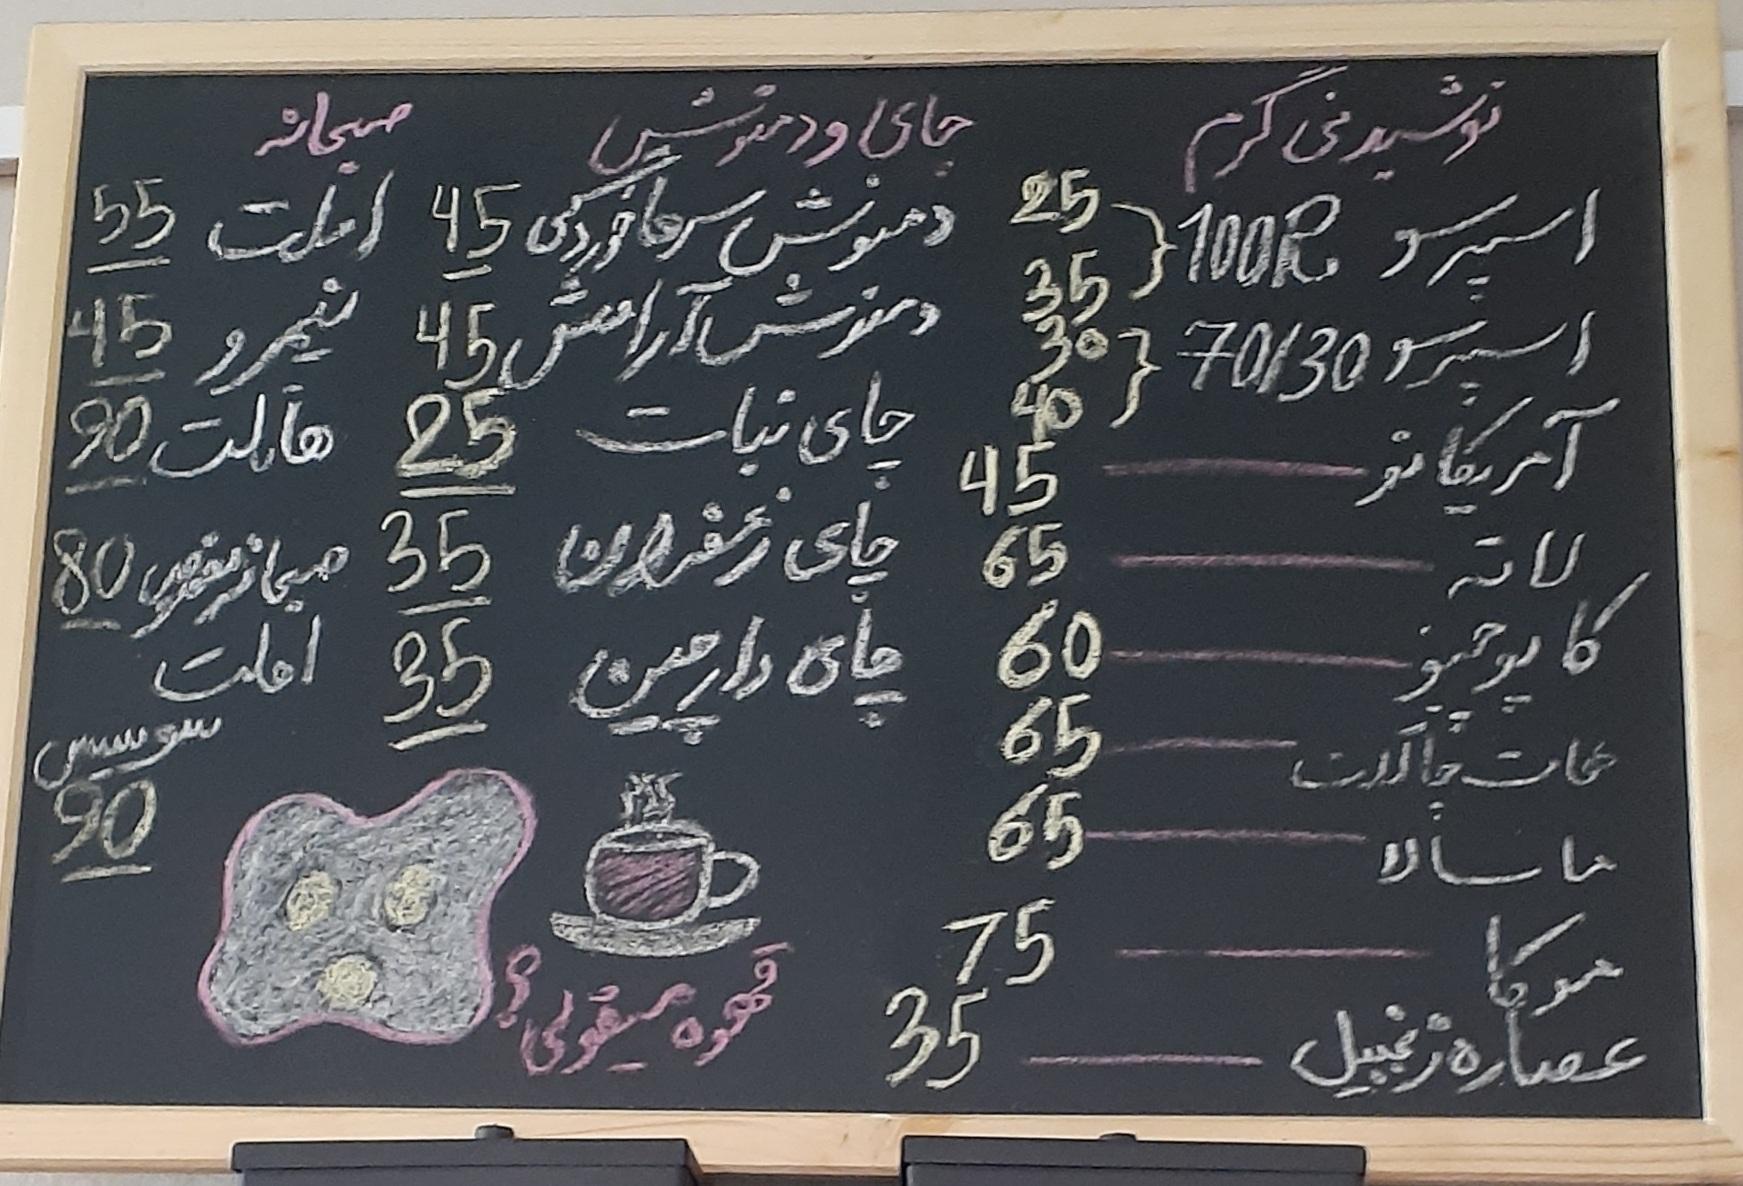 نوشیدنی گرم
اسپرسو 100R } 25
35
اسپرسو 70/30 } 30
40
آمریکانو 45
لاته 65
کاپوچینو 60
هات چاکلت 65
ماسالا 65
موکا 75
عصاره زنجبیل 35
چای و دمنوش
دمنوش سرماخوردگی 45
دمنوش آرامش 45
چای نبات 25
چای زعفران 35
چای دارچین 35
قهوه میقولی؟
صبحانه
املت 55
نیمرو 45
املت 90
80
املت
سوسیس
90